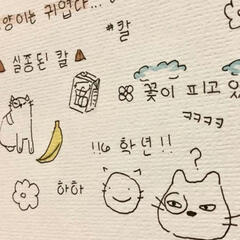 양이는 귀엽다...
#칼
실종된 칼
꽃이 피고 있
ㅋㅋㅋㅋ
!!6학년!!
하하
?